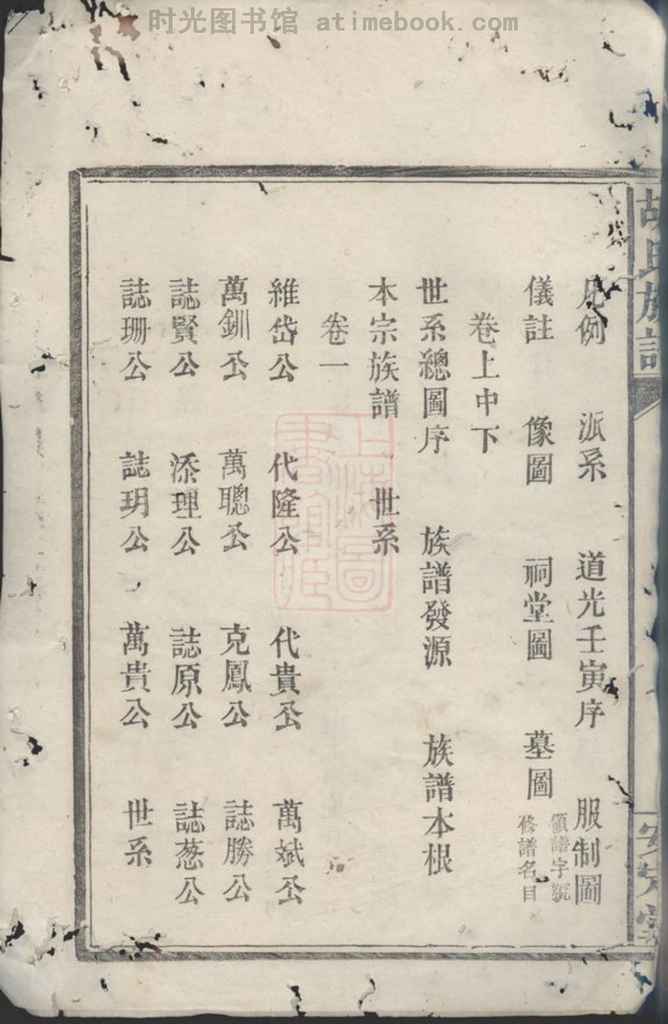 时光图书馆 atimebook.com
胡氏族譜
凡例 派系 道光壬寅序 服制圖
儀註 像圖 祠堂圖 墓圖 領譜字號 修譜名目
卷上中下
世系總圖序 族譜發源 族譜本根
本宗族譜 世系
卷一
維岱公 代隆公 代貴公 萬斌公
萬釧公 萬聰公 克鳳公 誌勝公
誌賢公 添理公 誌原公 誌葱公
誌珊公 誌玥公 萬貴公 世系